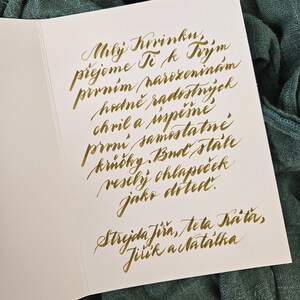 Milý Kovinku,
přejeme Ti k Tvým
prvním narozeninám
hodně radostných
chvil a úspěšné
první samostatné
krůčky. Buď stále
veselý chlapeček
jako doteď.
Strejda Jířa, teta Káťa,
Jiřík a Natálka